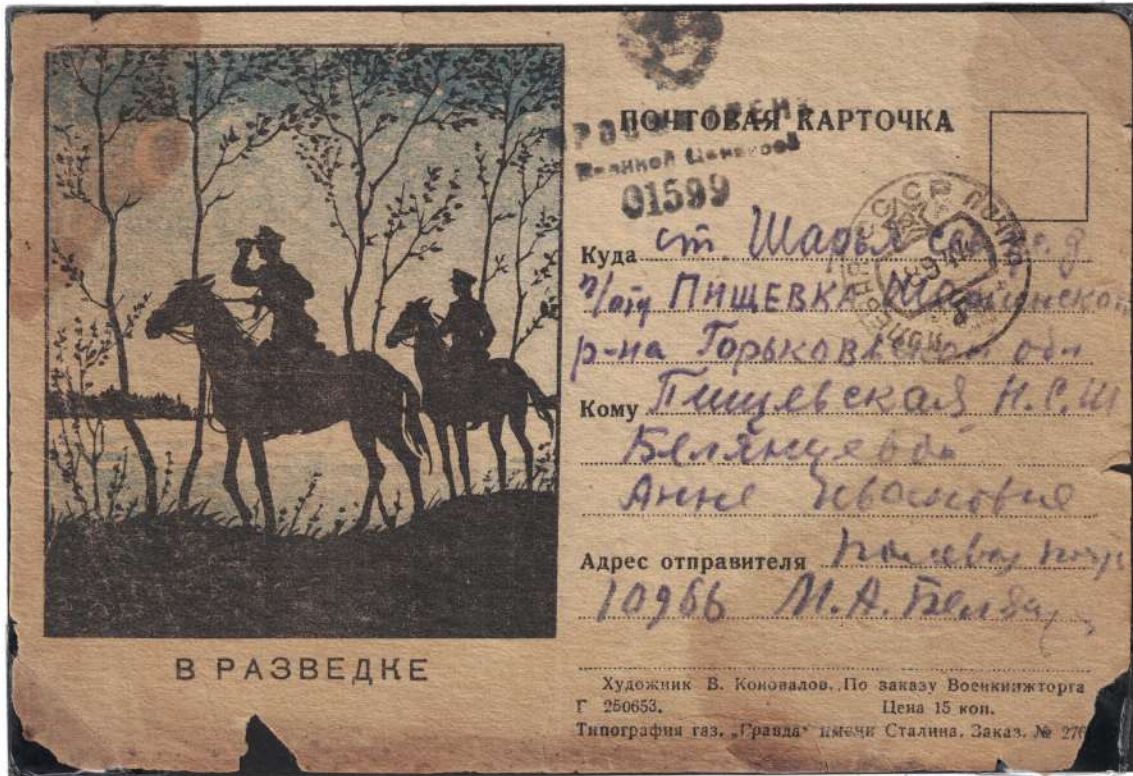 В РАЗВЕДКЕ
ПОЧТОВАЯ КАРТОЧКА
Военной Цензурой
01599
СССР ПОЧТА
Куда ст Шарья
п/отд ПИЩЕВКА
р-на Горьковской обл
Кому Пищевская Н.С.Ш
Белянцевой
Анне Ивановне
Адрес отправителя Полевая
10966 М.А. Белян
Художник В. Коновалов. По заказу Военкнижторга
Г 250653. Цена 15 коп.
Типография газ. „Правда" имени Сталина. Заказ. № 276